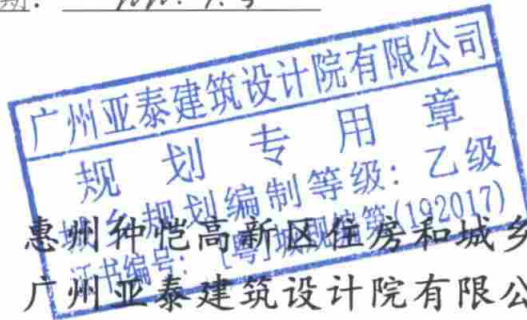 期：
广州亚泰建筑设计院有限公司
规划专用章
城乡规划编制等级：乙级
证书编号：[粤]城规编第(192017)
惠州仲恺高新区住房和城乡
广州亚泰建筑设计院有限公